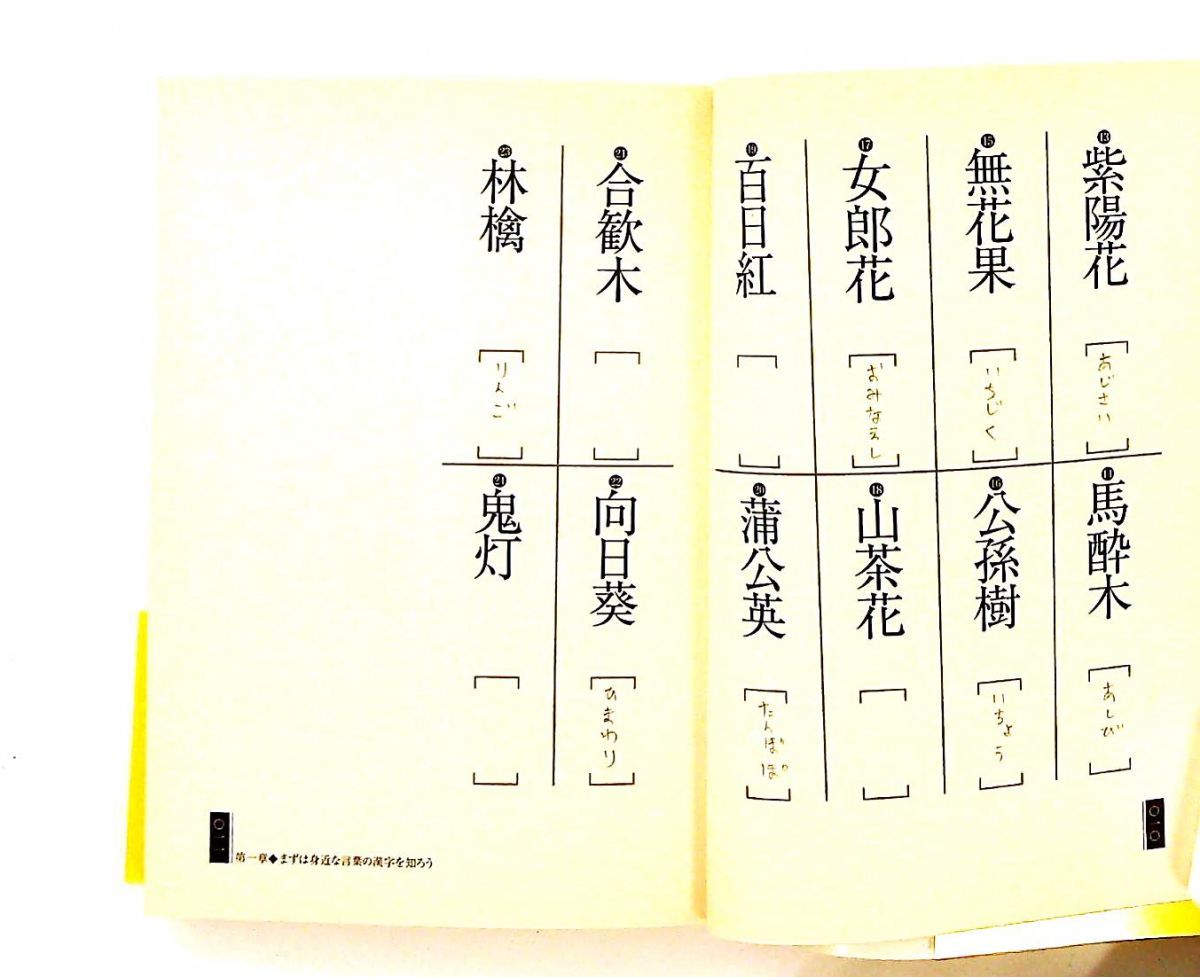 ⓭紫陽花[あじさい]
⓮馬酔木[あしび]
⓯無花果[いちじく]
⓰公孫樹[いちょう]
⓱女郎花[おみなえし]
⓲山茶花[ ]
⓳百日紅[ ]
⓴蒲公英[たんぽぽ]
〇一〇
㉑合歓木[ ]
㉒向日葵[ひまわり]
㉓林檎[りんご]
㉔鬼灯[ ]
〇一一
第一章◆まずは身近な言葉の漢字を知ろう